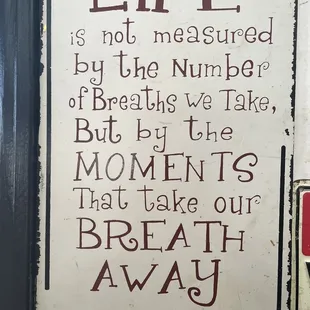 LIFE
is not measured
by the Number
of Breaths We Take,
But by the
MOMENTS
That take our
BREATH
AWAY